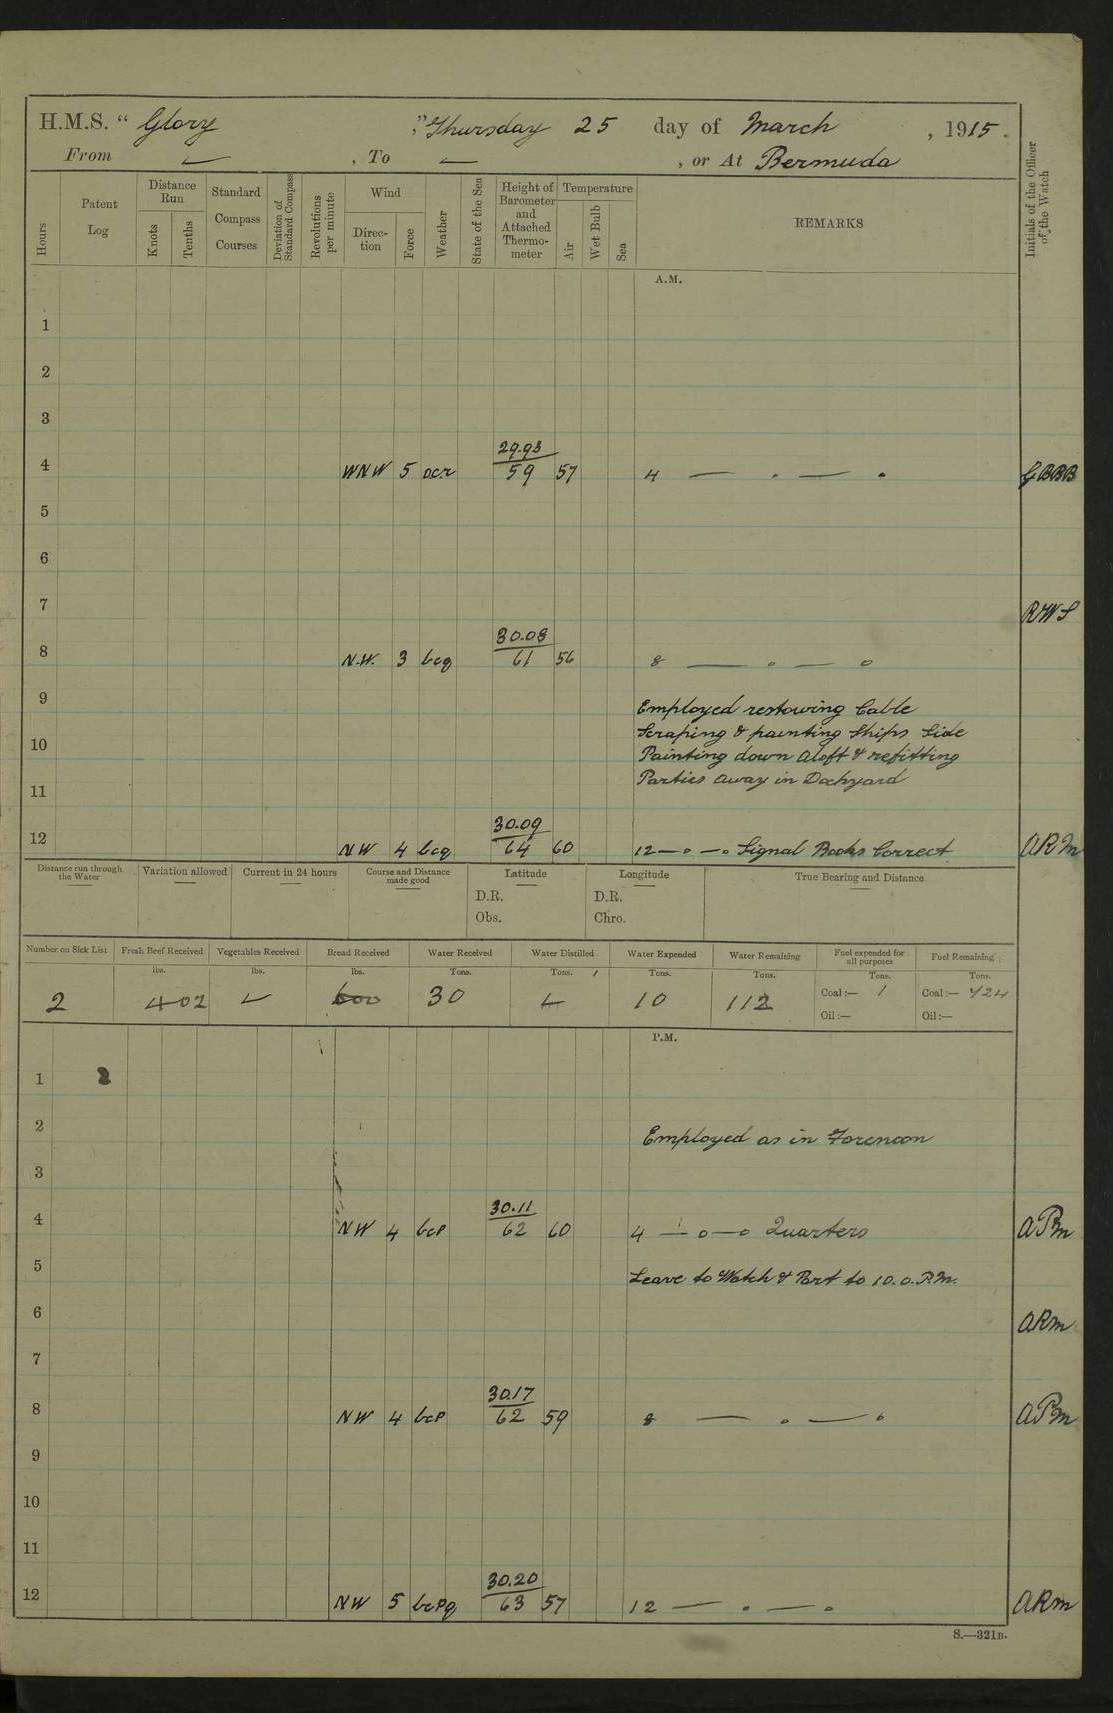 H.M.S. “ Glory ,” Thursday 25 day of March , 1915.
From — , To — , or At Bermuda
Hours
Patent Log
Distance Run
Knots
Tenths
Standard Compass Courses
Deviation of Standard Compass
Revolutions per minute
Wind
Direction
Force
Weather
State of the Sea
Height of Barometer and Attached Thermometer
Temperature
Air
Wet Bulb
Sea
REMARKS
Initials of the Officer of the Watch
A.M.
1
2
3
29.93
4 WNW 5 ocr 59 57 4 — . — . GBBB
5
6
7 RWS
30.08
8 N.W. 3 bcq 61 56 8 — o — o
9 Employed restowing Cable
Scraping & painting Ships Side
10 Painting down aloft & refitting
11 Parties away in Dockyard
30.09
12 NW 4 bcq 64 60 12 — o — o Signal Books Correct ARM
Distance run through the Water
Variation allowed
Current in 24 hours
Course and Distance made good
Latitude
D.R.
Obs.
Longitude
D.R.
Chro.
True Bearing and Distance
Number on Sick List Fresh Beef Received Vegetables Received Bread Received Water Received Water Distilled Water Expended Water Remaining Fuel expended for all purposes Fuel Remaining
lbs. lbs. lbs. Tons. Tons. Tons. Tons. Tons. Tons.
2 402 600 30 10 112 Coal:— 1 Coal:— 424
Oil:— Oil:—
P.M.
1 2
2 Employed as in Forenoon
3
30.11
4 NW 4 bcp 62 60 4 — o — o Quarters ARM
5 Leave to Watch & Part to 10.0.P.M.
6 ARM
7
30.17
8 NW 4 bcp 62 59 8 — o — o ARM
9
10
11
30.20
12 NW 5 bcpq 63 57 12 — o — o ARM
S.—321B.